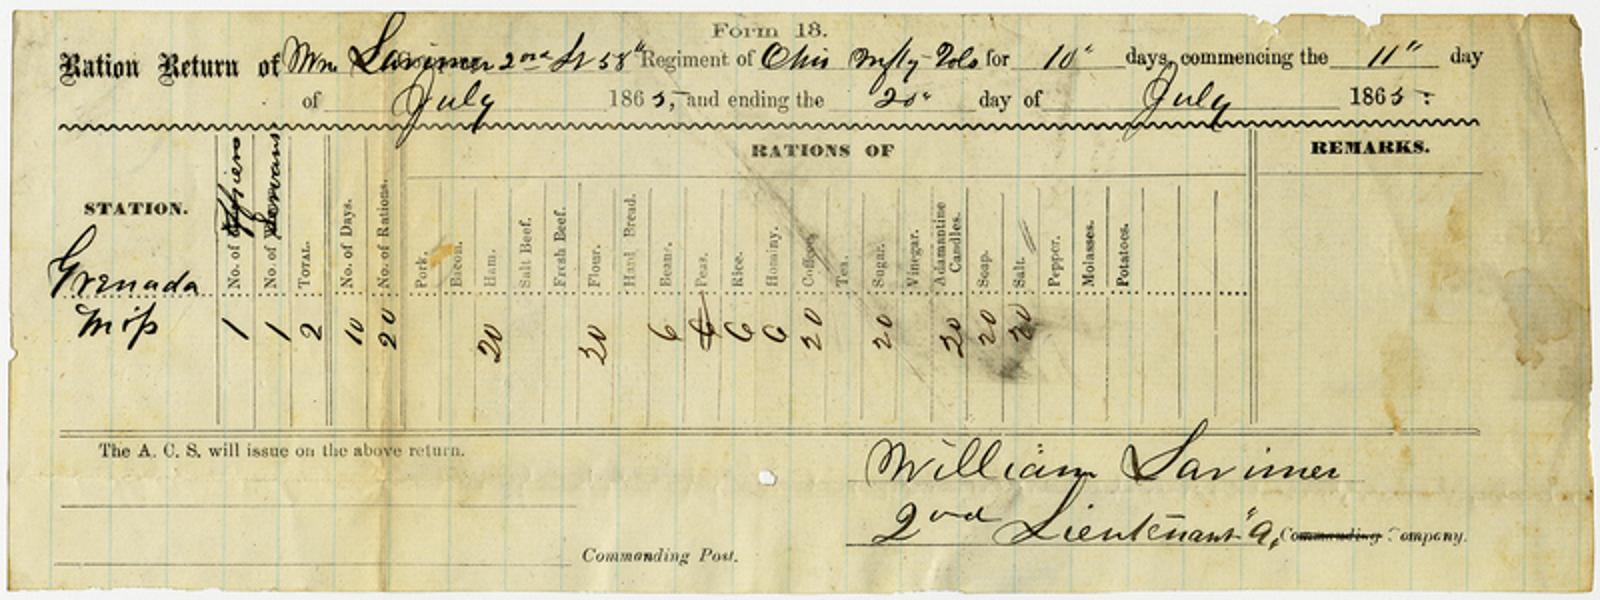 Form 13.
Ration Return of Wm Larimer 2nd Lt 58" Regiment of Ohio Infty Vols for 10" days, commencing the 11" day
of July 1865, and ending the 20" day of July 1865.
RATIONS OF
REMARKS.
STATION. No. of Officers No. of Servants TOTAL. No. of Days. No. of Rations. Pork. Bacon. Ham. Salt Beef. Fresh Beef. Flour. Hard Bread. Beans. Peas. Rice. Hominy. Coffee. Tea. Sugar. Vinegar. Adamantine Candles. Soap. Salt. Pepper. Molasses. Potatoes.
Grenada
Miss 1 1 2 10 20 20 20 6 6 6 6 20 20 20 20 20
The A. C. S. will issue on the above return.
William Larimer
2nd Lieutenant "A, Commanding Company.
Commanding Post.